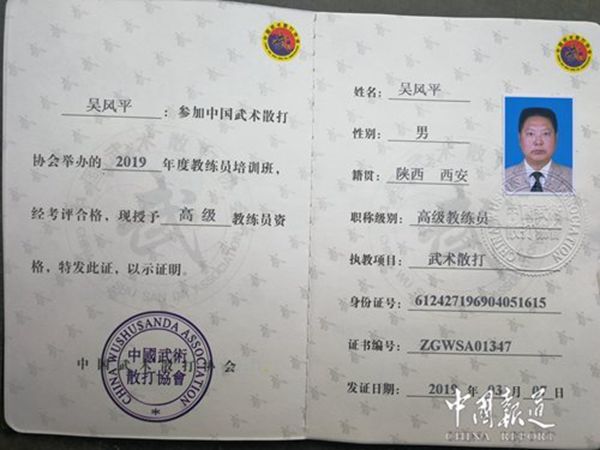 吴风平：参加中国武术散打
协会举办的 2019 年度教练员培训班，
经考评合格，现授予 高级 教练员资
格，特发此证，以示证明。
中国武术散打协会
CHINA WUSHUSANDA ASSOCIATION
中國武術
散打協會
姓名：吴风平
性别：男
籍贯：陕西 西安
职称级别：高级教练员
执教项目：武术散打
身份证号：612427196904051615
证书编号：ZGWSA01347
发证日期：2019 年 03 月 07 日
中国報道
CHINA REPORT